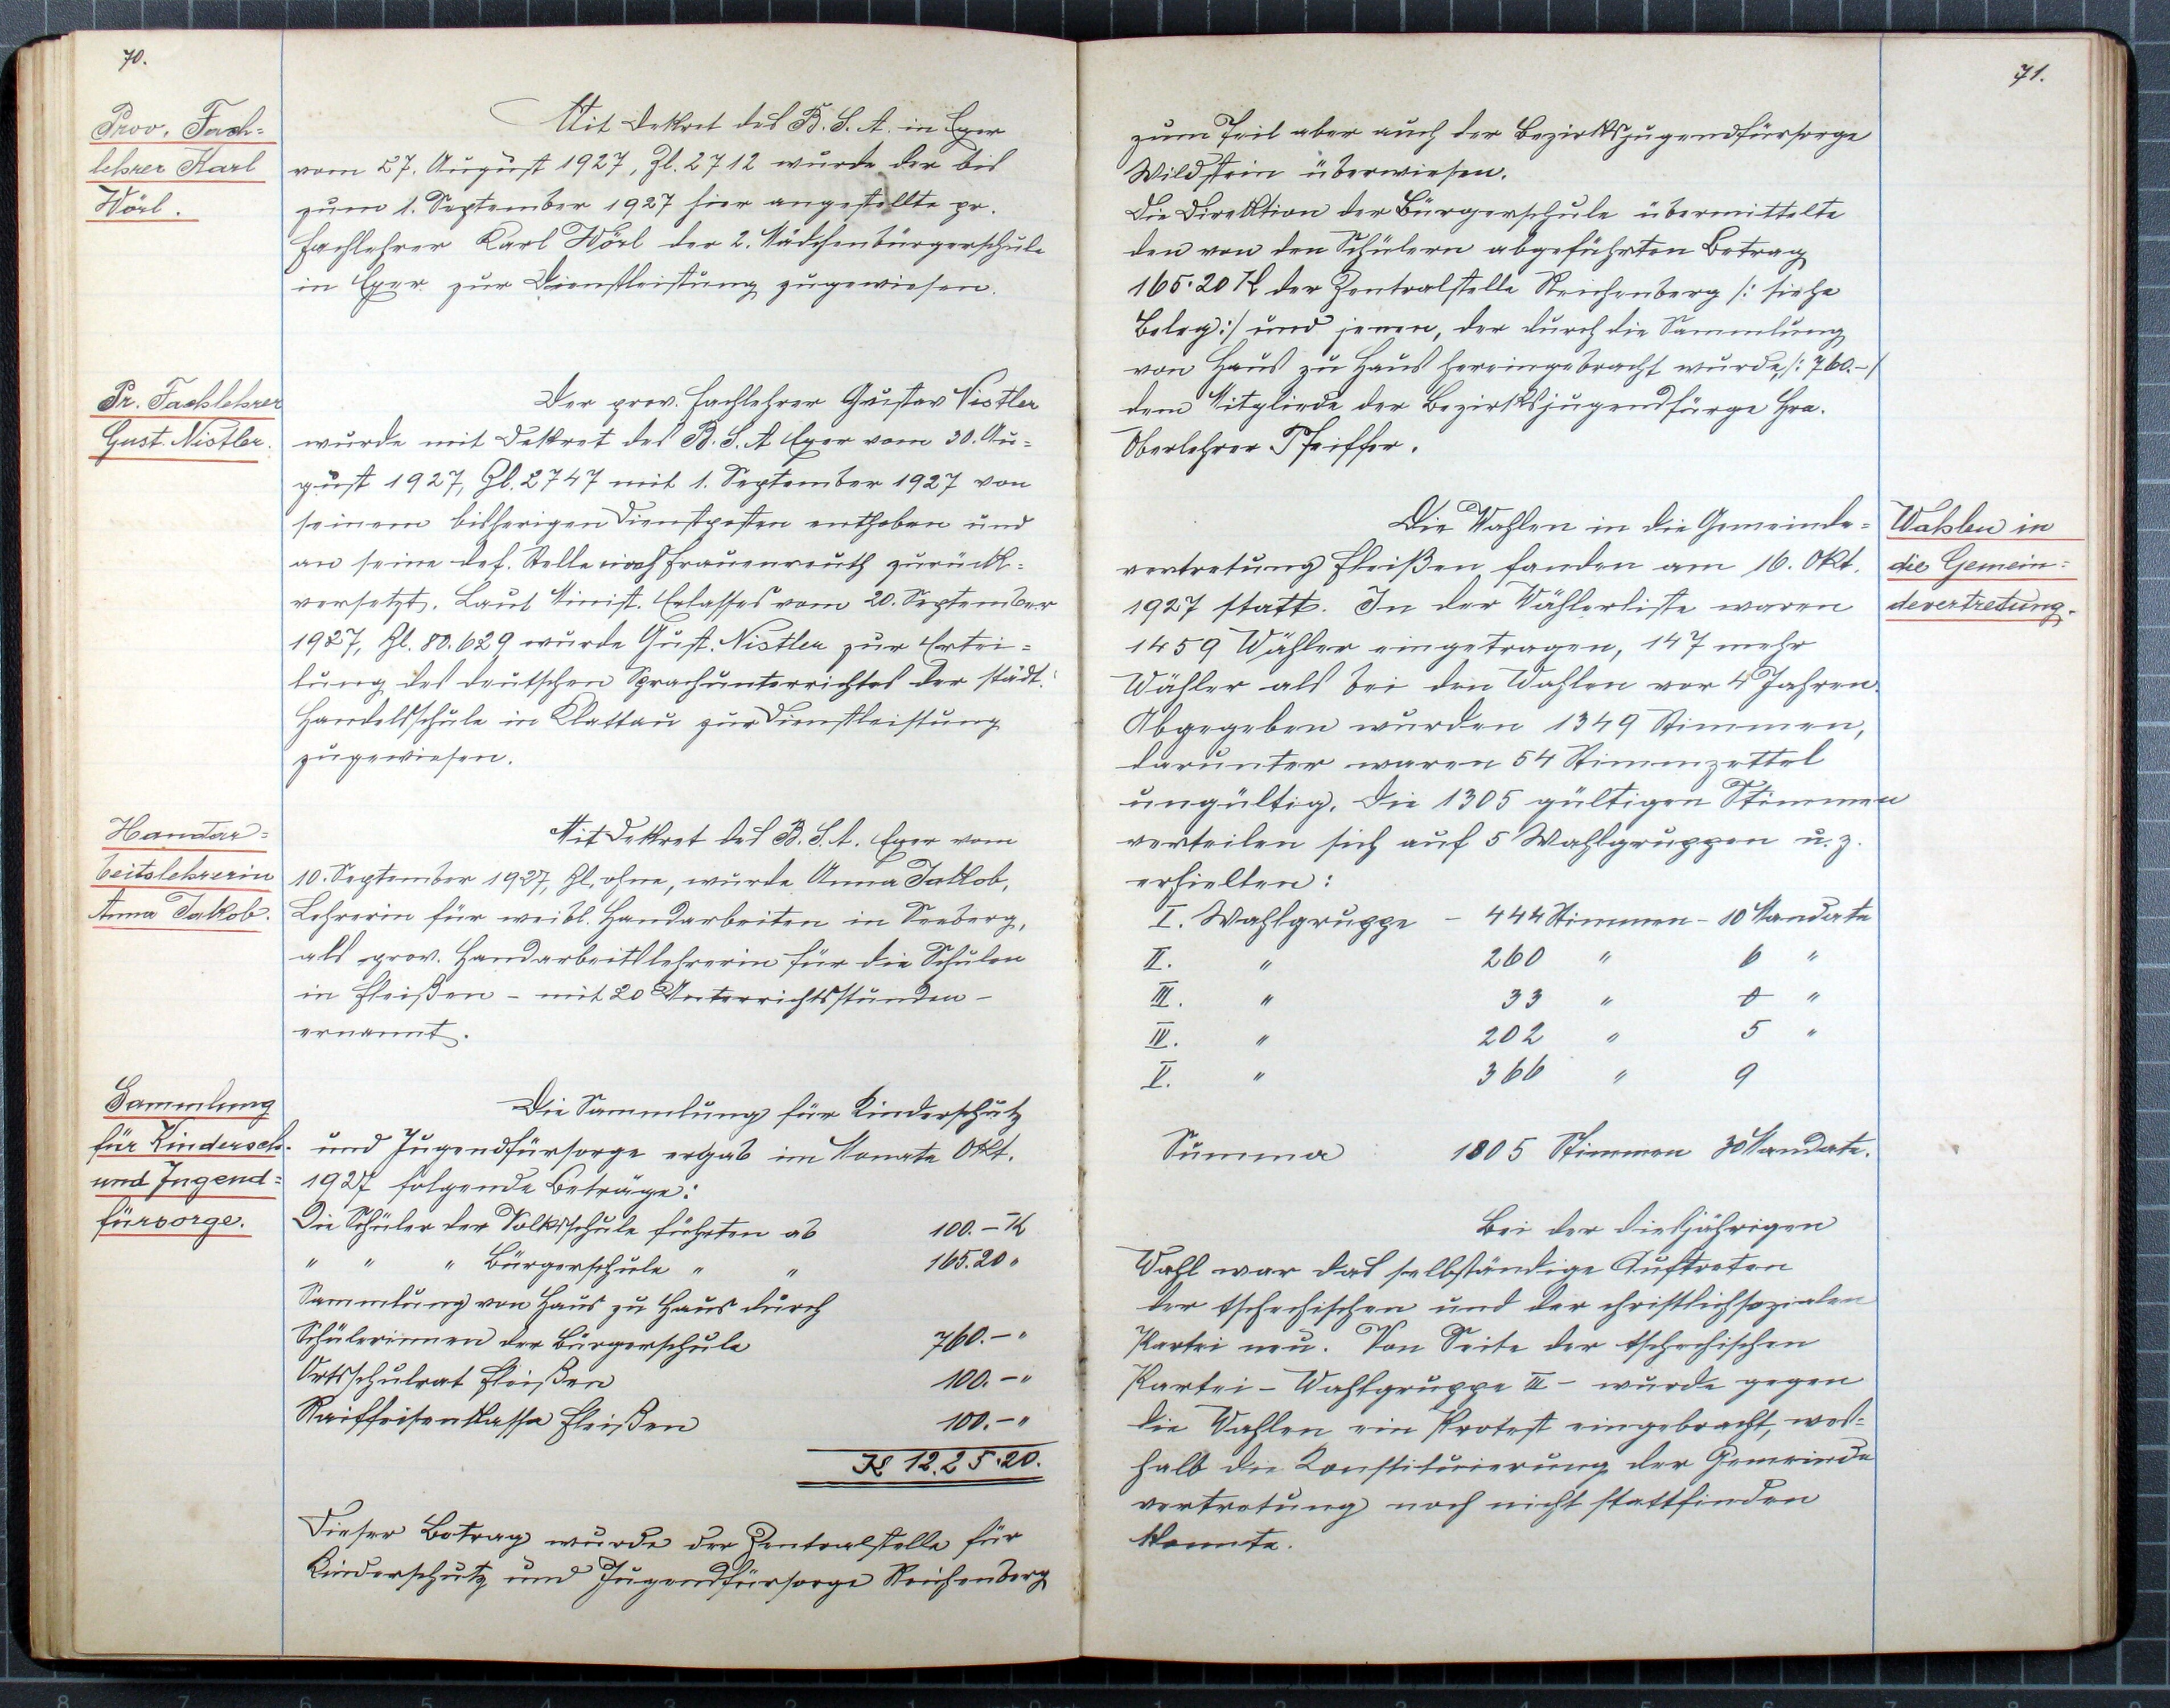 70.
Prov. Fach=
lehrer Karl
Wörl.
Mit Dekret des B. S. A. in Eger
vom 27. August 1927, Zl. 2712 wurde der bis
zum 1. September 1927 hier angestellte pr.
Fachlehrer Karl Wörl der 2. Mädchenbürgerschule
in Eger zur Dienstleistung zugewiesen.
Pr. Fachlehrer
Gust. Nistler.
Der prov. Fachlehrer Gustav Nistler
wurde mit Dekret des B. S. A Eger vom 30. Au=
gust 1927, Zl. 2747 mit 1. September 1927 von
seinem bisherigen Dienstposten enthoben und
an seine def. Stelle nach Frauenreuth zurück=
versetzt. Laut Minist. Erlasses vom 20. September
1927, Zl. 80.629 wurde Gust. Nistler zur Ertei=
lung des deutschen Sprachunterrichtes der städt.
Handelsschule in Klattau zur Dienstleistung
zugewiesen.
Handar=
beitslehrerin
Anna Jakob.
Mit Dekret des B. S. A. Eger vom
10. September 1927, Zl. ohne, wurde Anna Jakob,
Lehrerin für weibl. Handarbeiten in Seeberg,
als prov. Handarbeitslehrerin für die Schulen
in Fleißen - mit 20 Unterrichtsstunden -
ernannt.
Sammlung
für Kindersch.
und Jugend=
fürsorge.
Die Sammlung für Kinderschutz
und Jugendfürsorge ergab im Monate Okt.
1927 folgende Beträge:
Die Schüler der Volksschule führten ab 100.- K
" " " Bürgerschule " " 165.20 "
Sammlung von Haus zu Haus durch
Schülerinnen der Bürgerschule 760.- "
Ortsschulrat Fleißen 100.- "
Raiffeisenkassa Fleißen 100.- "
K 12.25.20.
Dieser Betrag wurde der Zentralstelle für
Kinderschutz und Jugendfürsorge Reichenberg
71.
zum Teil aber auch der Bezirksjugendfürsorge
Wildstein überwiesen.
Die Direktion der Bürgerschule übermittelte
den von den Schülern abgeführten Betrag
165.20 K der Zentralstelle Reichenberg /: siehe
Beleg :/ und jenen, der durch die Sammlung
von Haus zu Haus hereingebracht wurde, /: 760.- /
dem Mitgliede der Bezirksjugendfürge Hrn.
Oberlehrer Pfeiffer.
Wahlen in
die Gemein=
devertretung.
Die Wahlen in die Gemeinde=
vertretung Fleißen fanden am 16. Okt.
1927 statt. In der Wählerliste waren
1459 Wähler eingetragen, 147 mehr
Wähler als bei den Wahlen vor 4 Jahren.
Abgegeben wurden 1349 Stimmen,
darunter waren 54 Stimmzettel
ungültig. Die 1305 gültigen Stimmen
verteilen sich auf 5 Wahlgruppen u. z.
erhielten:
I. Wahlgruppe - 444 Stimmen - 10 Mandate
II. " 260 " 6 "
III. " 33 " 0 "
IV. " 202 " 5 "
V. " 366 " 9
Summa 1305 Stimmen 30 Mandate.
Bei der diesjährigen
Wahl war das selbständige Auftreten
der tschechischen und der christlichsozialen
Partei neu. Von Seite der tschechischen
Partei - Wahlgruppe III - wurde gegen
die Wahlen ein Protest eingebracht, wes=
halb die Konstituierung der Gemeinde
vertretung noch nicht stattfinden
konnte.
8 7 6 5 4 3 2 1 1 2 3 4 5 6 7 8